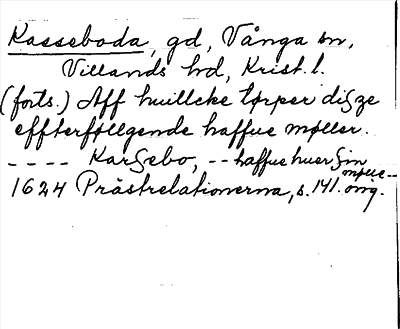 Kasseboda, gd, Vånga sn,
Villands hd, Krist. l.
(forts.) Aff huillcke tørper disze
effterføllgende haffue møller.
---- Karsebo, -- haffue huer sin
mølle --
1624 Prästrelationerna, s. 141. orig.